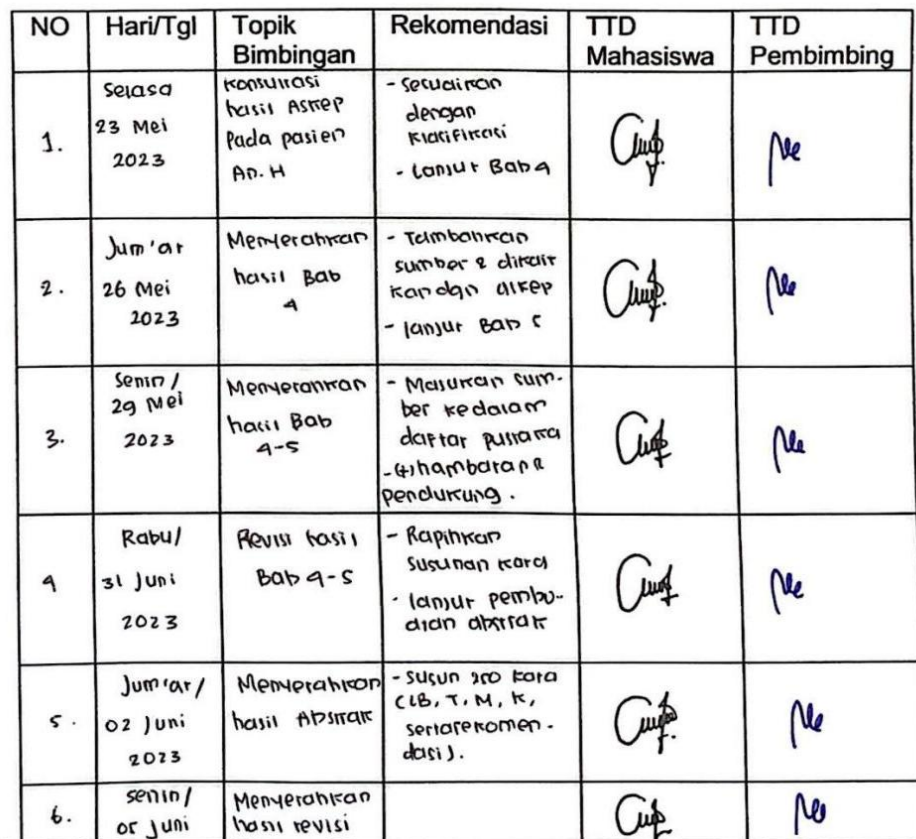 NO Hari/Tgl Topik Bimbingan Rekomendasi TTD Mahasiswa TTD Pembimbing
1.
Selasa
23 Mei
2023
Konsultasi
hasil Askep
Pada pasien
An. H
- Sesuaikan
dengan
klasifikasi
- Lanjut Bab 4
2.
Jum'at
26 Mei
2023
Menyerahkan
hasil Bab
4
- Tambahkan
sumber & dikait
kan dgn askep
- lanjut Bab 5
3.
Senin /
29 Mei
2023
Menyerahkan
hasil Bab
4-5
- Masukan sum-
ber kedalam
daftar pustaka
- (+) hambatan &
pendukung.
4
Rabu/
31 Juni
2023
Revisi hasil
Bab 4-5
- Rapihkan
susunan kata
- lanjut pembu-
atan abstrak
5.
Jum'at/
02 Juni
2023
Menyerahkan
hasil Abstrak
- Susun 250 kata
(LB, T, M, K,
serta rekomen-
dasi).
6.
Senin/
05 Juni
Menyerahkan
hasil revisi